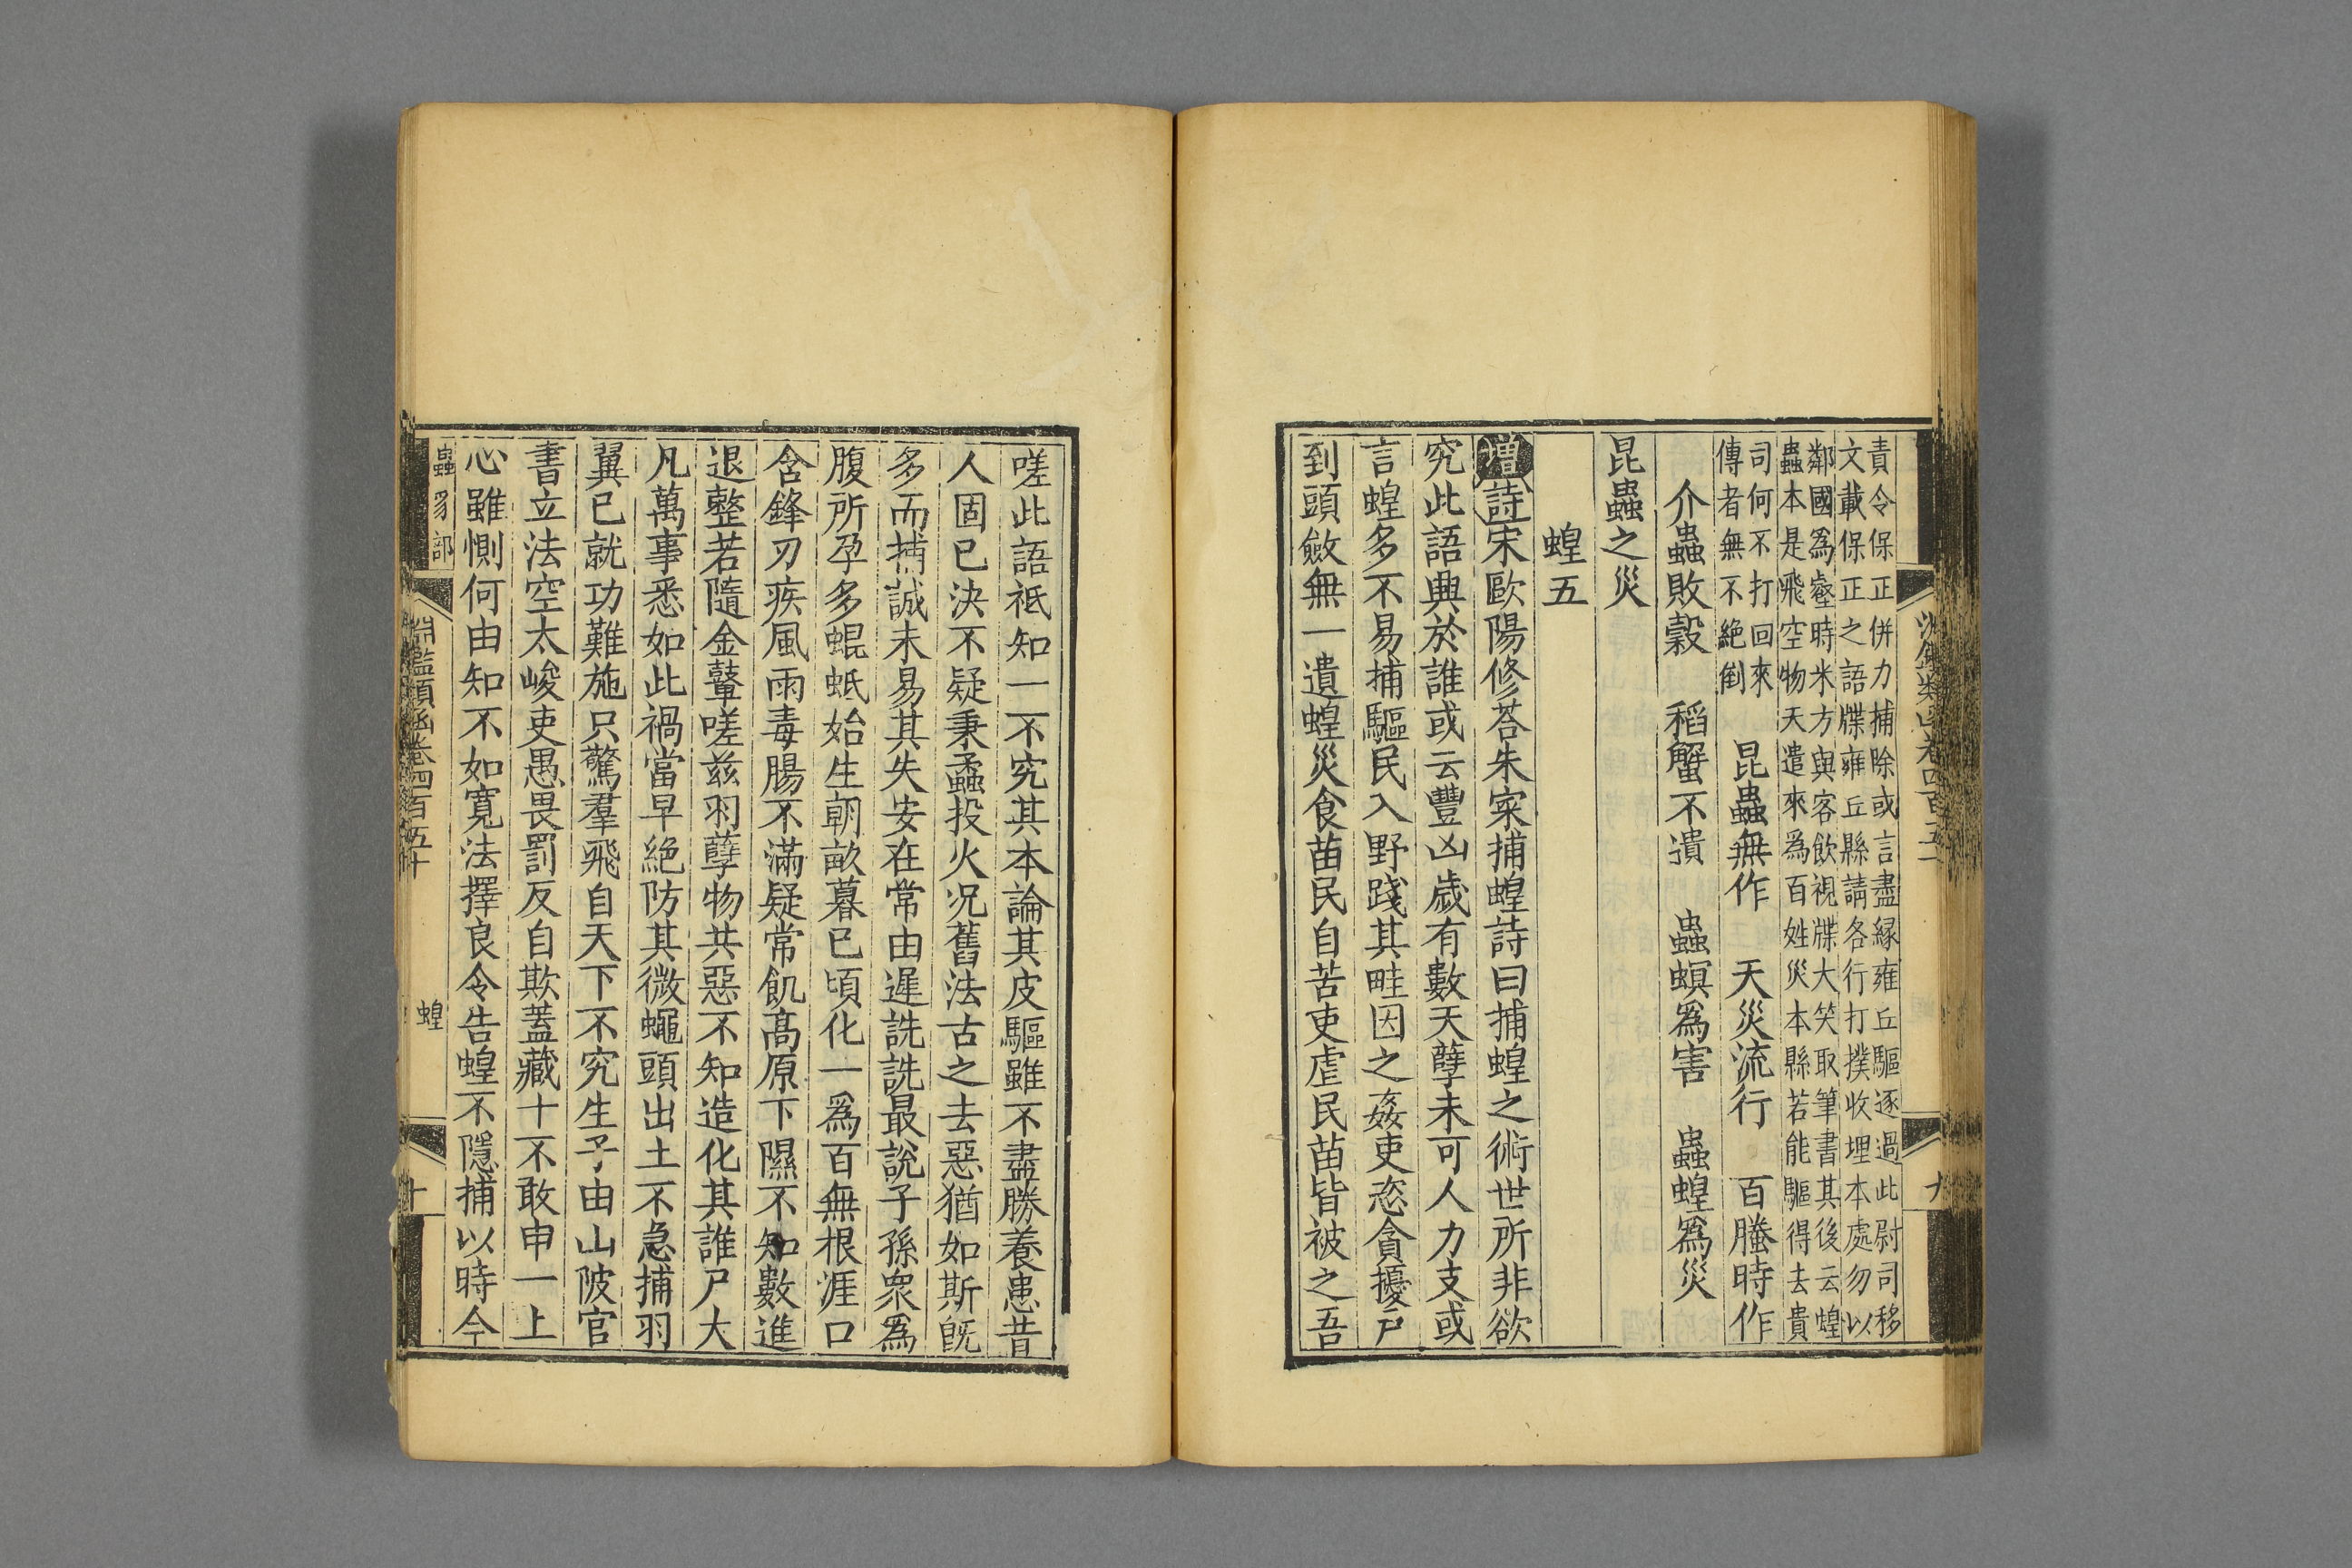 責令保正併力捕除或言盡縁雍丘驅逐過此尉司移
文載保正之語牒雍丘縣請各行打撲收埋本處勿以
鄰國為壑時米方與客飲視牒大笑取筆書其後云蝗
蟲本是飛空物天遣來為百姓災本縣若能驅得去貴
司何不打回來
傳者無不絶倒
昆蟲無作 天災流行 百螣時作
介蟲敗穀 稻蟹不遺 蟲螟為害 蟲蝗為災
昆蟲之災
蝗五
增詩宋歐陽修荅朱寀捕蝗詩曰捕蝗之術世所非欲
究此語興於誰或云豐凶歲有數天孽未可人力支或
言蝗多不易捕驅民入野踐其畦因之姦吏恣貪擾戸
到頭斂無一遺蝗災食苗民自苦吏虐民苗皆被之吾
嗟此語祗知一不究其本論其皮驅雖不盡勝養患昔
人固已決不疑秉蟊投火況舊法古之去惡猶如斯旣
多而捕誠未易其失安在常由遲詵詵最說子孫衆為
腹所孕多蜫蚳始生朝畝暮已頃化一為百無根涯口
含鋒刃疾風雨毒腸不滿疑常飢髙原下隰不知數進
退整若隨金鼙嗟茲羽孽物共惡不知造化其誰尸大
凡萬事悉如此禍當早絶防其微蠅頭出土不急捕羽
翼已就功難施只驚羣飛自天下不究生子由山陂官
書立法空太峻吏愚畏罰反自欺蓋藏十不敢申一上
心雖惻何由知不如寬法擇良令告蝗不隱捕以時今
蟲豸部
淵鑑類函卷四百五十
蝗
十